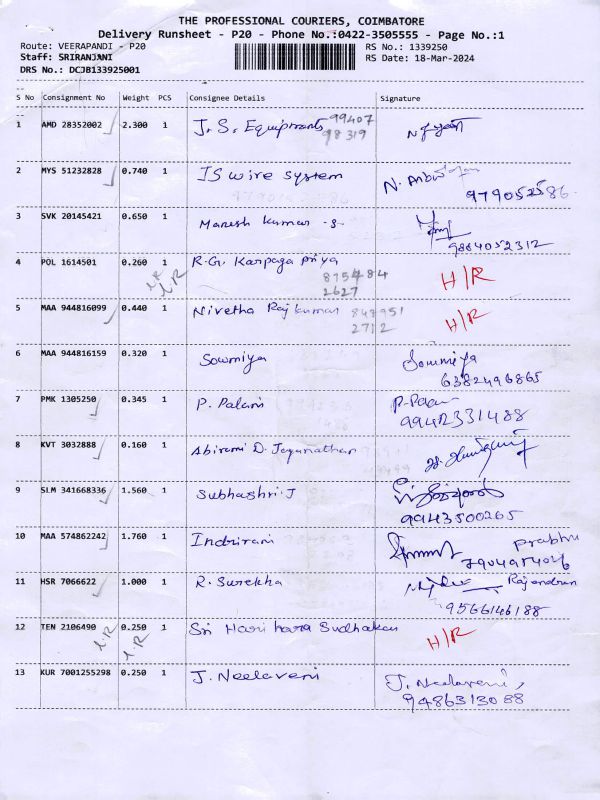 THE PROFESSIONAL COURIERS, COIMBATORE
Delivery Runsheet - P20 - Phone No.:0422-3505555 - Page No.:1
Route: VEERAPANDI - P20 RS No.: 1339250
Staff: SRIRANJANI RS Date: 18-Mar-2024
DRS No.: DCJB133925001
S No Consignment No Weight PCS Consignee Details Signature
1 AMD 28352002 2.300 1 J. S. Equipments 99407
98319
2 MYS 51232828 0.740 1 JS wire system N.
979052586
3 SVK 20145421 0.650 1 Maresh Kumar -S-
9884052312
4 POL 1614501 0.260 1 R.G. Karpaga priya H/R
875484
2627
5 MAA 944816099 0.440 1 Nivetha Rajkumar 847951 H/R
2712
6 MAA 944816159 0.320 1 Sowmiya Sowmiya
6382496865
7 PMK 1305250 0.345 1 P. Palani
9942331488
8 KVT 3032888 0.160 1 Abirami D. Jeyanathan
9 SLM 341668336 1.560 1 Subhashri.J
9943500265
10 MAA 574862242 1.760 1 Indrirani Prabhu
11 HSR 7066622 1.000 1 R. Surekha Rajendran
9566146188
12 TEN 2106490 0.250 1 Sri Hari hara Sudhakan H/R
13 KUR 7001255298 0.250 1 J. Neelaveni J. Neelaveni,
9486313088